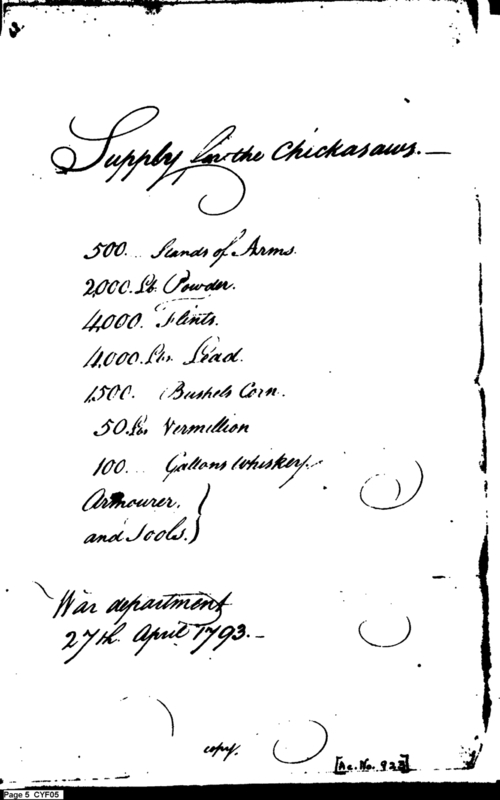 Supply for the Chickasaws.—
500. Stands of Arms.
2,000. Lb. Powder.
4,000. Flints.
4,000. Lbs. Lead.
1,500. Bushels Corn.
50. Lbs Vermillion
100. Gallons Whiskey.
Armourer.
and Tools.
War department
27th. April 1793.—
copy.
[Ac. No. 922]
Page 5 CYF05